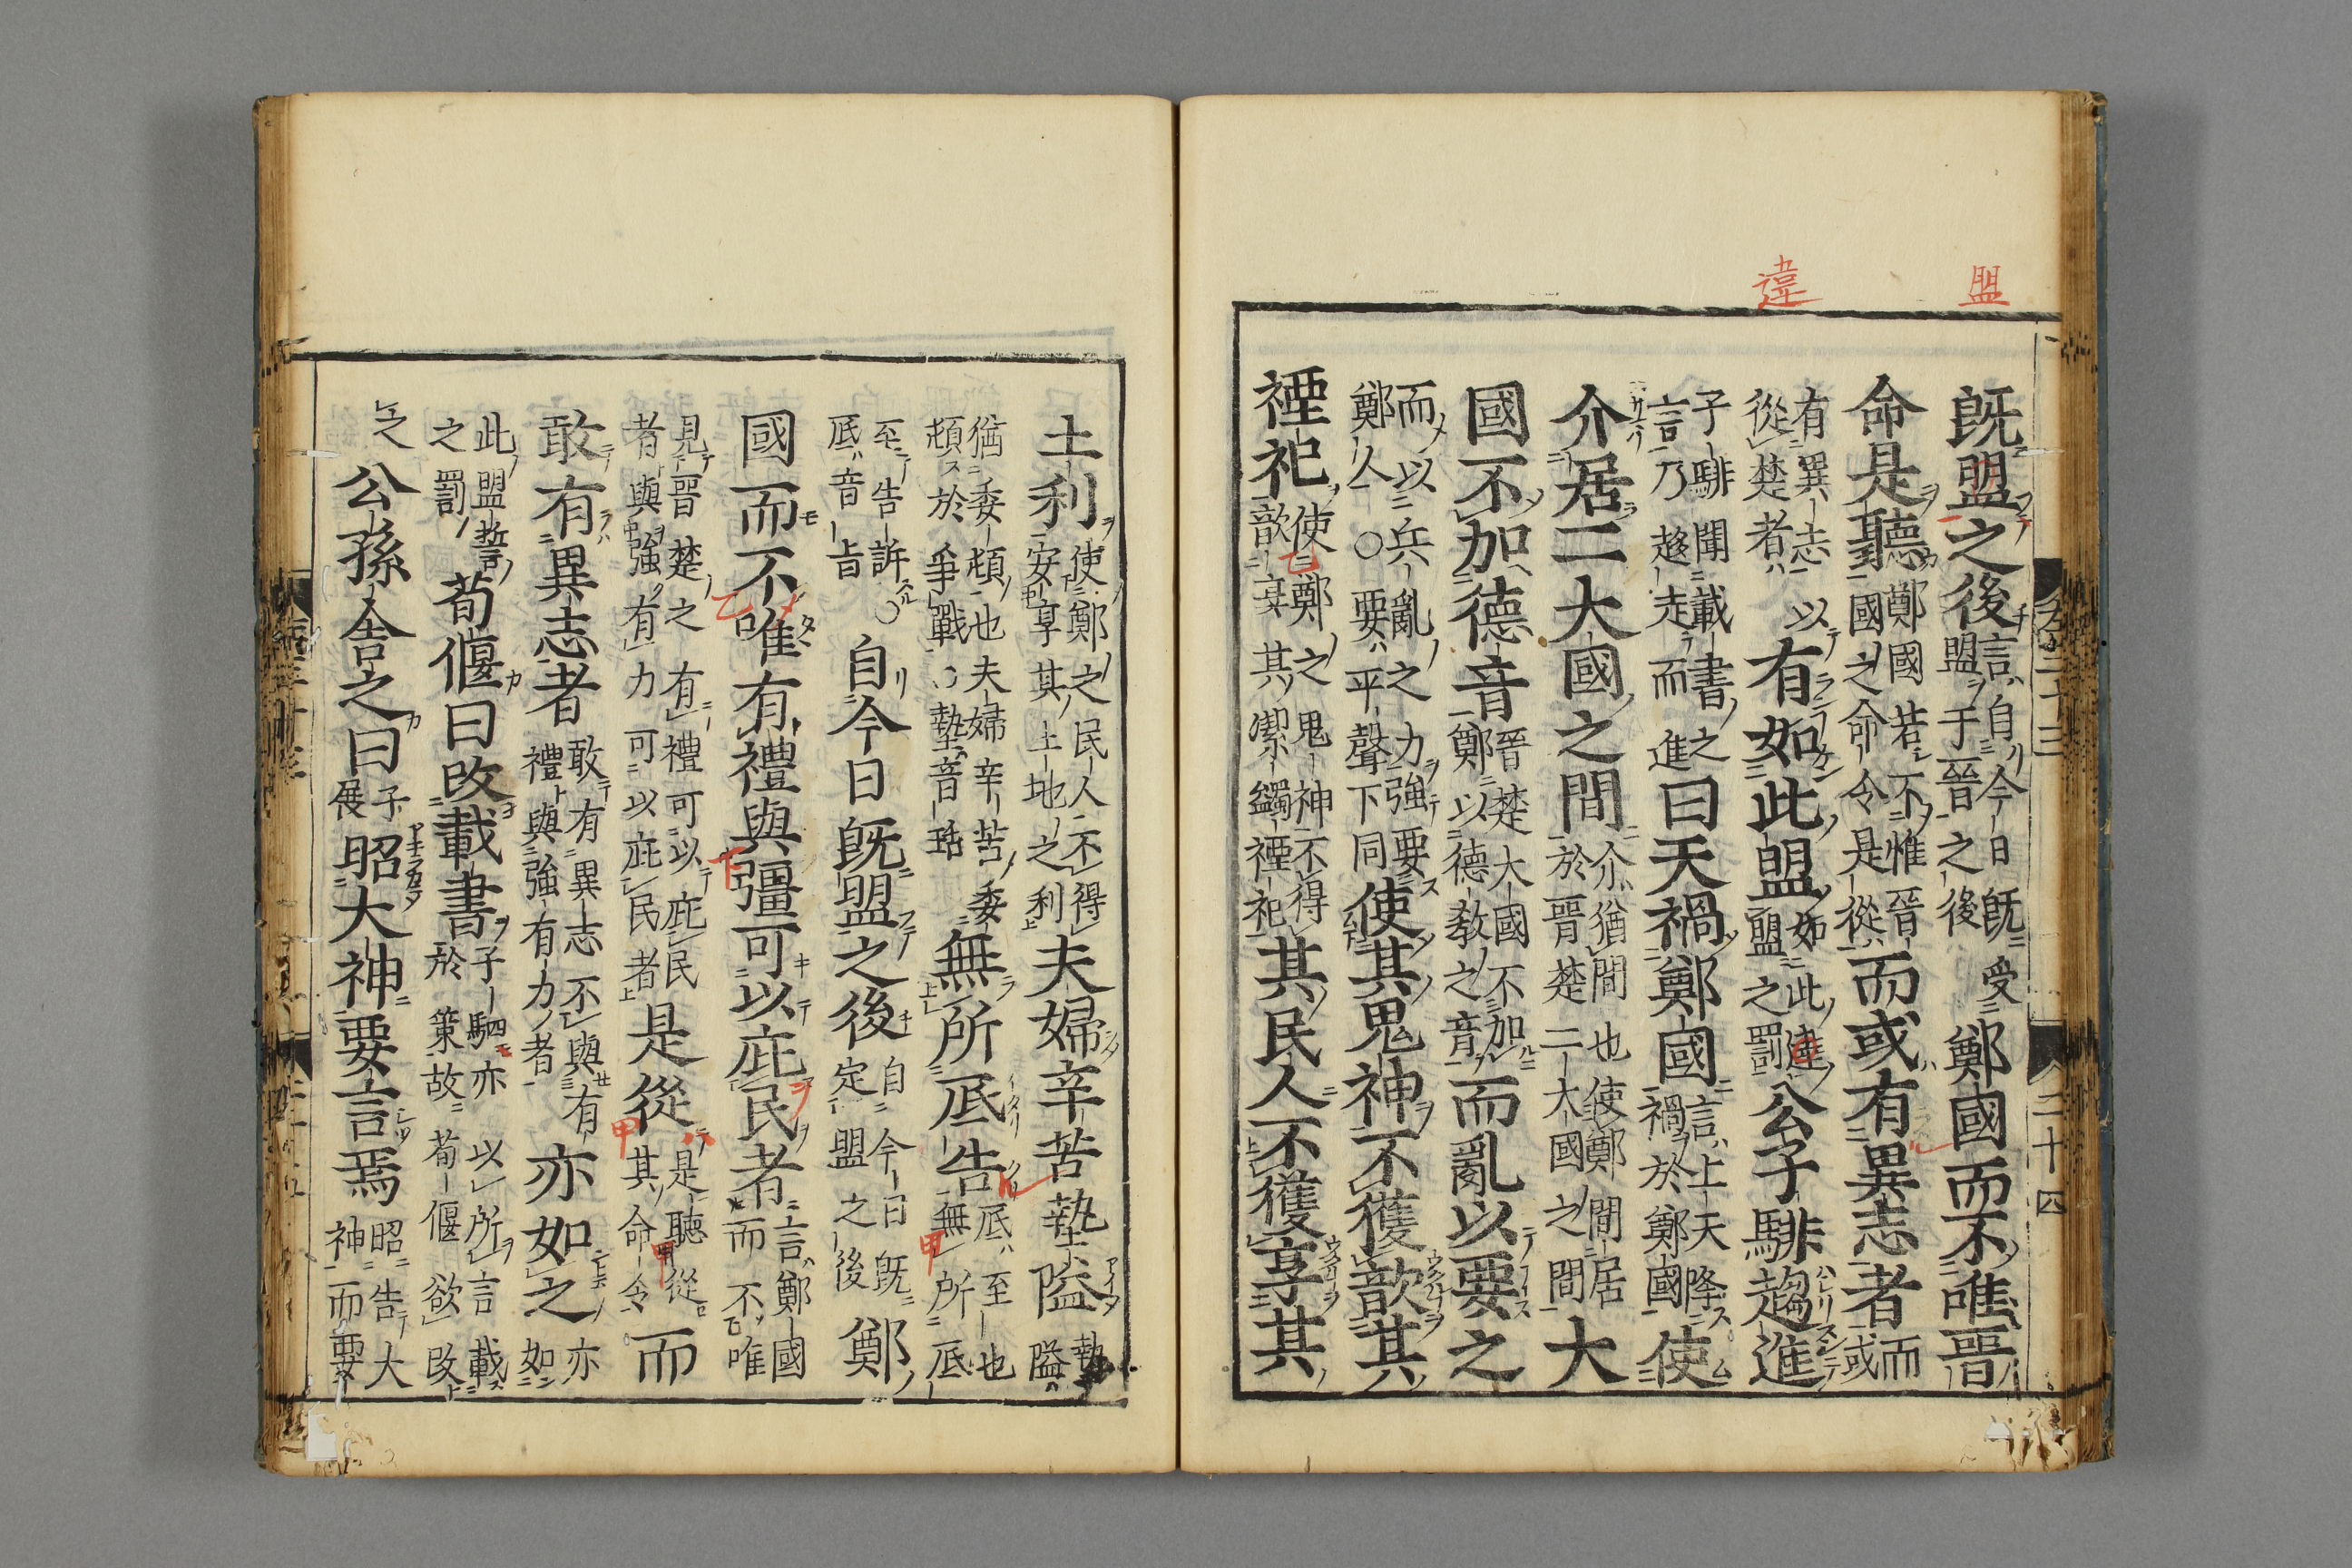 盟
違
既盟之後言自今日既受盟于晉之後鄭國而不唯晉
命是聽鄭國若不惟晉國之命令是從而或有異志者而或
有異志以從楚者有如此盟如此違盟之罰公子騑趨進
子騑聞載書之言乃趍走而進曰天禍鄭國言上天降禍於鄭國使
介居二大國之間介猶間也使鄭間居於晉楚二大國之間大
國不加德音晉楚大國不加鄭以德教之音而亂以要之
而以兵亂之力強要鄭人○要平聲下同使其鬼神不獲歆其
禋祀使鄭之鬼神不得歆享其潔蠲禋祀其民人不獲享其
土利使鄭之民人不得安享其土地之利夫婦辛苦墊隘墊隘
猶委頓也夫婦辛苦委頓於爭戰○墊音玷無所底告底至也無所底
至告訴○底音旨自今日既盟之後自今日既定盟之後鄭
國而不唯有禮與彊可以庇民者言鄭國而不唯
見晉楚之有禮可以庇民者與強有力可以庇民者是從是聽從其命令而
敢有異志者敢有異志不與有禮與強有力者亦如之亦如
此盟誓之罰荀偃曰改載書子駟亦以所言載於策故荀偃欲改
之公孫舍之曰子展昭大神要言焉昭告大神而要
二十三
二十四